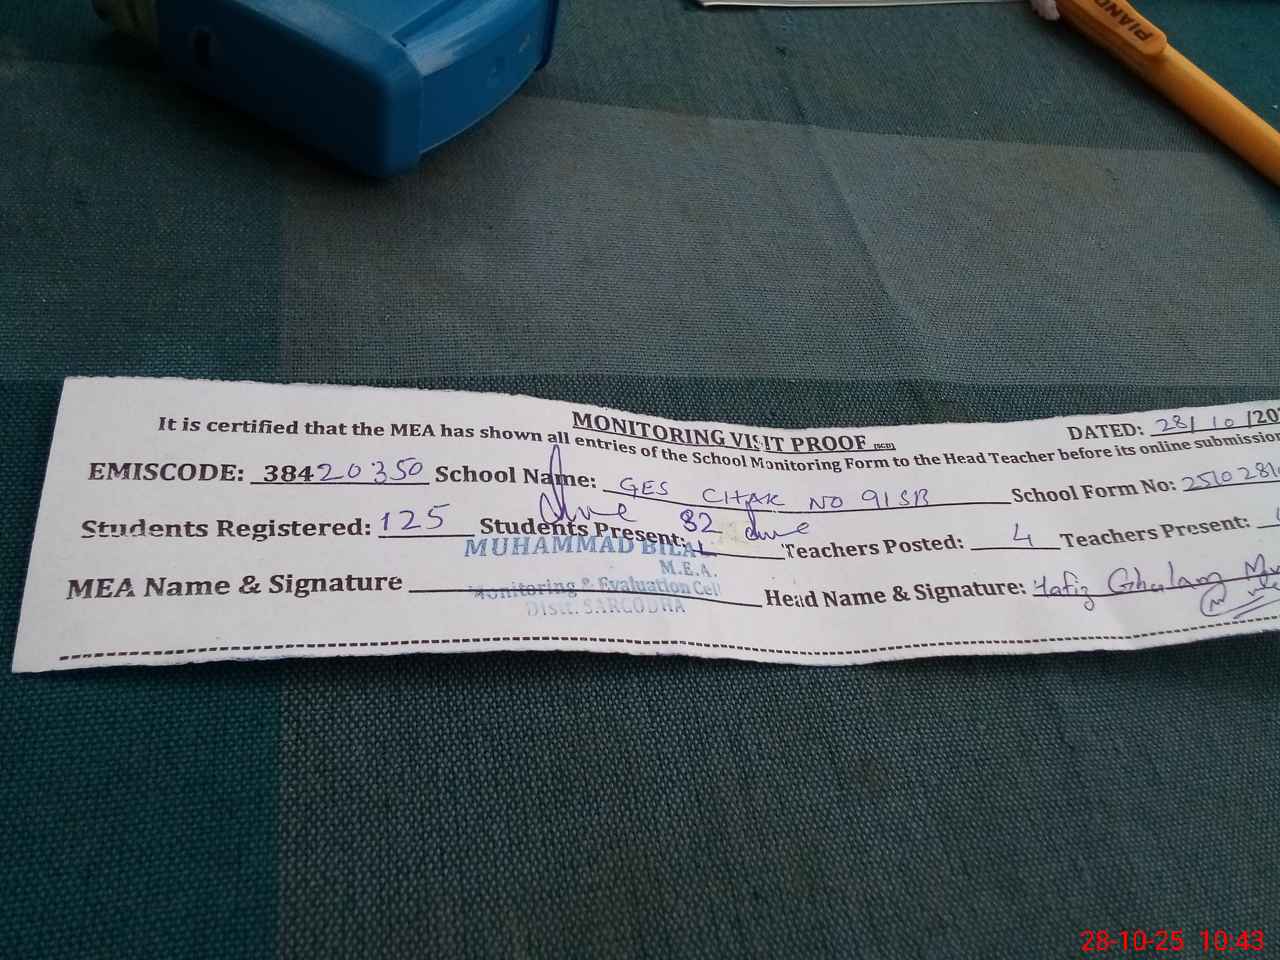 PIANO
MONITORING VISIT PROOF
DATED: 28/10/20
It is certified that the MEA has shown all entries of the School Monitoring Form to the Head Teacher before its online submission
EMISCODE: 38420350 School Name: GES CHAK NO 91SB School Form No: 2510281
Students Registered: 125 Students Present: 82 Teachers Posted: 4 Teachers Present:
MUHAMMAD BILAL
M.E.A.
Monitoring & Evaluation Cell
Distt. SARGODHA
MEA Name & Signature Head Name & Signature: Hafiz Ghulam
28-10-25 10:43